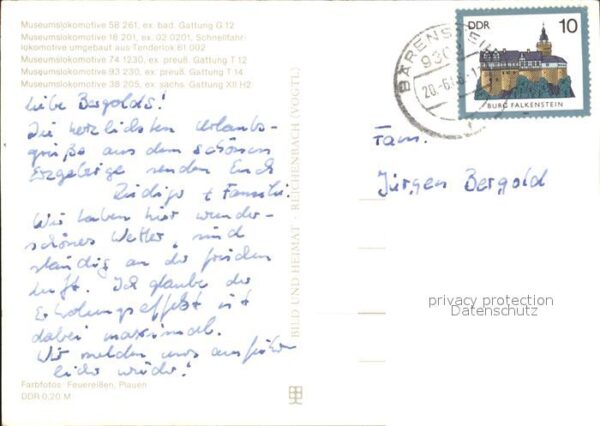 Museumslokomotive 58 261, ex. bad. Gattung G 12
Museumslokomotive 18 201, ex. 02 0201, Schnellfahr-
lokomotive umgebaut aus Tenderlok 61 002
Museumslokomotive 74 1230, ex. preuß. Gattung T 12
Museumslokomotive 93 230, ex. preuß. Gattung T 14
Museumslokomotive 38 205, ex. sächs. Gattung XII H2
Liebe Bergolds!
Die herzlichsten Urlaubs-
grüße aus dem schönen
Erzgebirge senden Euch
+ Familie.
Wir haben hier wunder-
schönes Wetter, sind
ständig an der frischen
Luft. Ich glaube der
Erholungseffekt ist
dabei maximal.
Wir melden uns ausführ-
lich wieder!
Farbfotos: Feuereißen, Plauen
DDR 0,20 M
BILD UND HEIMAT · REICHENBACH (VOGTL)
BÄRENSTEIN
930
20.-6
DDR 10
BURG FALKENSTEIN
Fam.
Jürgen Bergold
privacy protection
Datenschutz